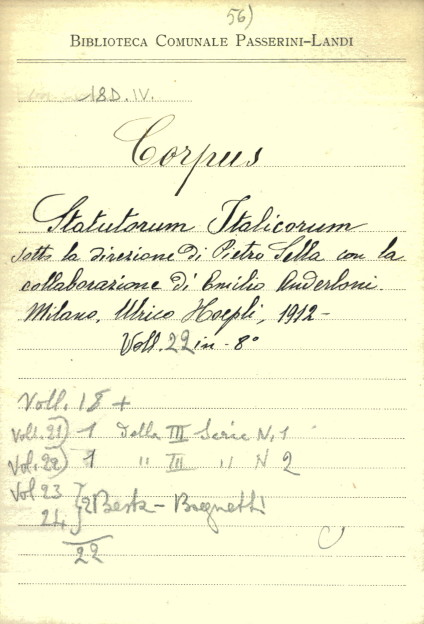 56)
BIBLIOTECA COMUNALE PASSERINI-LANDI
18D. IV.
Corpus
Statutorum Italicorum
sotto la direzione di Pietro Sella con la
collaborazione di Emilio Anderloni.
Milano, Ulrico Hoepli, 1912-
Voll. 22 in-8°
Voll. 18 +
Voll. 21) 1 della III Serie N. 1
Vol. 22) 1 " III " N 2
Vol 23
24 } 2 Besta - Bognetti
22